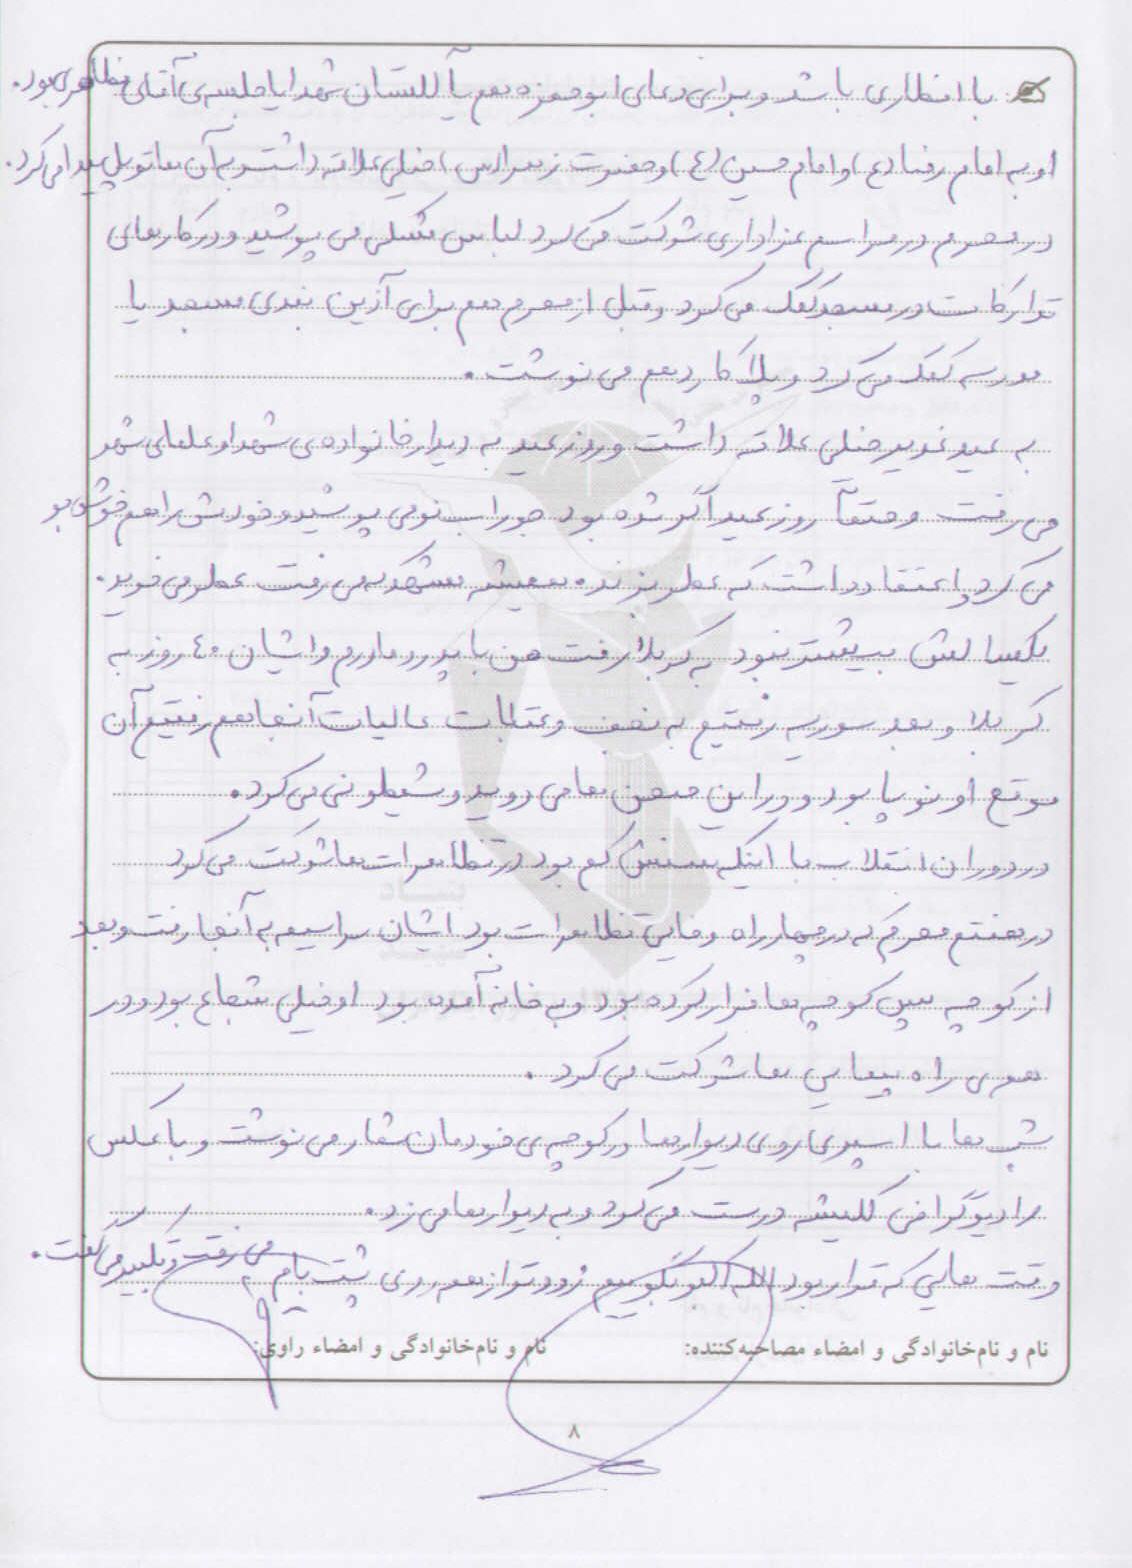 با افطاری باشد و برای دعای ابوحمزه هم یا گلستان شهدا یا جلسه‌ی آقای مظاهری بود.
او به امام رضا (ع) و امام حسین (ع) و حضرت زهرا (س) خیلی علاقه داشت و به آن ها توسل پیدا می کرد.
در محرم در مراسم عزاداری شرکت می کرد لباس مشکی می پوشید و در کارهای
تدارکات در مسجد کمک می کرد و قبل از محرم هم برای آذین بندی مسجد یا
مدرسه کمک می کرد و پلاکارد هم می نوشت.
به عید غدیر خیلی علاقه داشت و روز عید به دیدار خانواده ی شهدا و علمای شهر
می رفت و حتماً روز عید اگر شده بود جوراب نو می پوشید و خودش را هم خوش بو
می کرد و اعتقاد داشت که عطر بزند. همیشه مشهد که می رفت عطر می خرید.
یکسالش بیشتر نبود به کربلا رفت من با پدر و مادرم و ایشان ۴۰ روز به
کربلا و بعد سوریه رفتیم به نجف و عتبات عالیات آنجا هم رفتیم آن
موقع او نوپا بود و در این صحن ها می دوید و شیطونی می کرد.
در دوران انقلاب با اینکه سنش کم بود در تظاهرات ها شرکت می کرد
در هفتم محرم که در چهارراه وفایی تظاهرات بود ایشان سراسیمه به آنجا رفت و بعد
از کوچه پس کوچه ها فرار کرده بود و به خانه آمده بود او خیلی شجاع بود و در
همه ی راه پیمایی ها شرکت می کرد.
شب ها با اسپری روی دیوارها در کوچه ی خودمان شعار می نوشت و با عکس
رادیوگرافی کلیشه درست می کرد و به دیوارها می زد.
وقت هایی که قرار بود الله اکبر بگوییم زودتر از همه روی پشت بام می رفت و تکبیر می گفت.
نام و نام‌خانوادگی و امضاء مصاحبه‌کننده: نام و نام‌خانوادگی و امضاء راوی:
۸